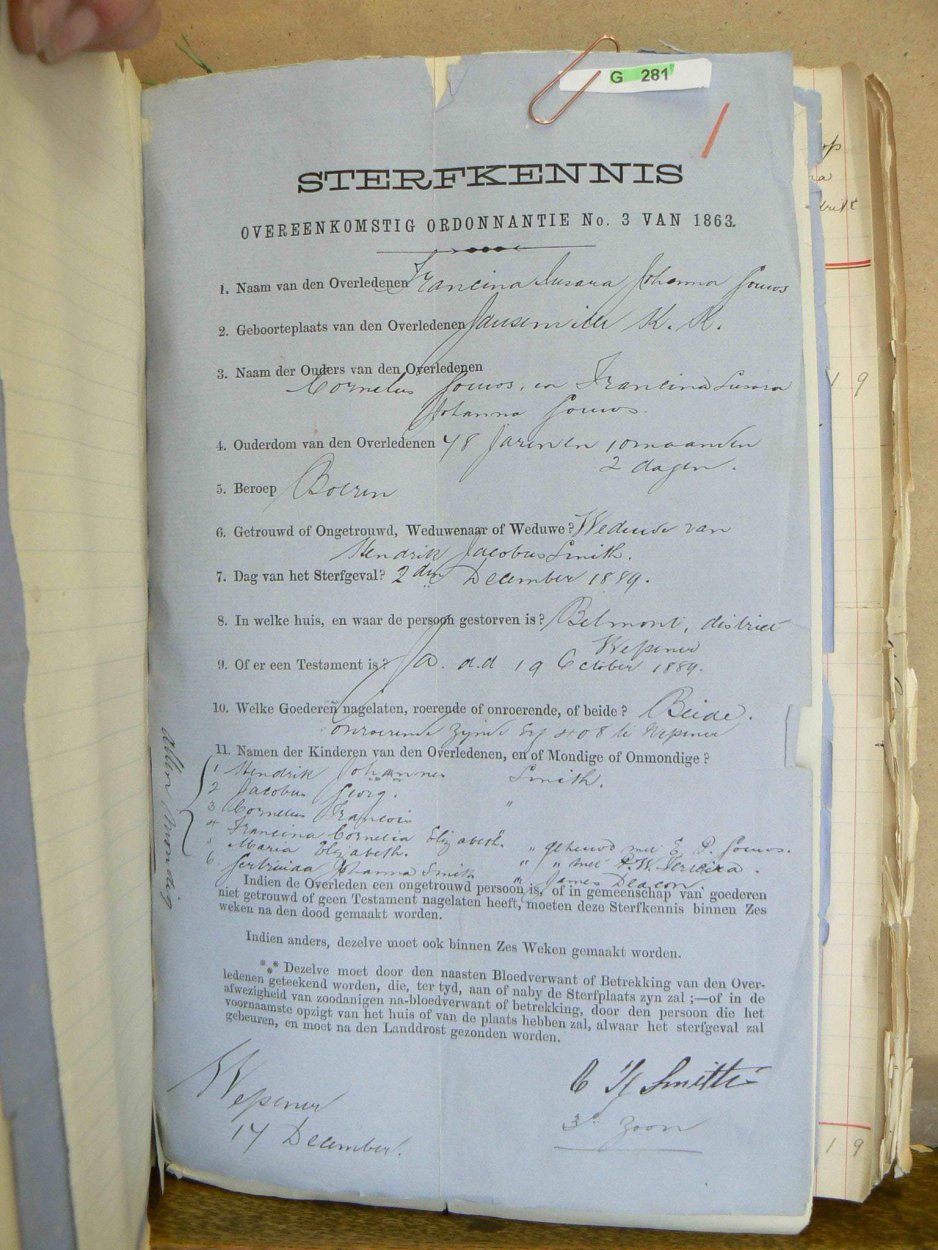 G 281
STERFKENNIS
OVEREENKOMSTIG ORDONNANTIE No. 3 VAN 1863.
1. Naam van den Overledenen Francina Susara Johanna Gouws
2. Geboorteplaats van den Overledenen K. K.
3. Naam der Ouders van den Overledenen
Cornelus Gouws, en Francina Susara
Johanna Gouws.
4. Ouderdom van den Overledenen 48 Jaren en 10 maanden
2 dagen.
5. Beroep Boerin
6. Getrouwd of Ongetrouwd, Weduwenaar of Weduwe? Weduwe van
Hendrik Jacobus Smith.
7. Dag van het Sterfgeval? 2den December 1889.
8. In welke huis, en waar de persoon gestorven is? Belmont, district
Wepener
9. Of er een Testament is? Ja. d.d 19 October 1889.
10. Welke Goederen nagelaten, roerende of onroerende, of beide? Beide.
onroerende zijnde Erf 408 te Wepener
11. Namen der Kinderen van den Overledenen, en of Mondige of Onmondige?
1 Hendrik Johannes Smith.
2 Jacobus Georg. "
3 Cornelus Francois
4 Francina Cornelia Elizabeth " gehuwd met E. P. Gouws.
5 Maria Elizabeth. " " met
6. Johanna Smith " James Deacon.
Allen Mondig
Indien de Overleden een ongetrouwd persoon is, of in gemeenschap van goederen
niet getrouwd of geen Testament nagelaten heeft, moeten deze Sterfkennis binnen Zes
weken na den dood gemaakt worden.
Indien anders, dezelve moet ook binnen Zes Weken gemaakt worden.
*** Dezelve moet door den naasten Bloedverwant of Betrekking van den Over-
ledenen geteekend worden, die, ter tyd, aan of naby de Sterfplaats zyn zal ;—of in de
afwezigheid van zoodanigen na-bloedverwant of betrekking, door den persoon die het
voornaamste opzigt van het huis of van de plaats hebben zal, alwaar het sterfgeval zal
gebeuren, en moet na den Landdrost gezonden worden.
C Smith
Wepener 3e Zoon
14 December.
19
19